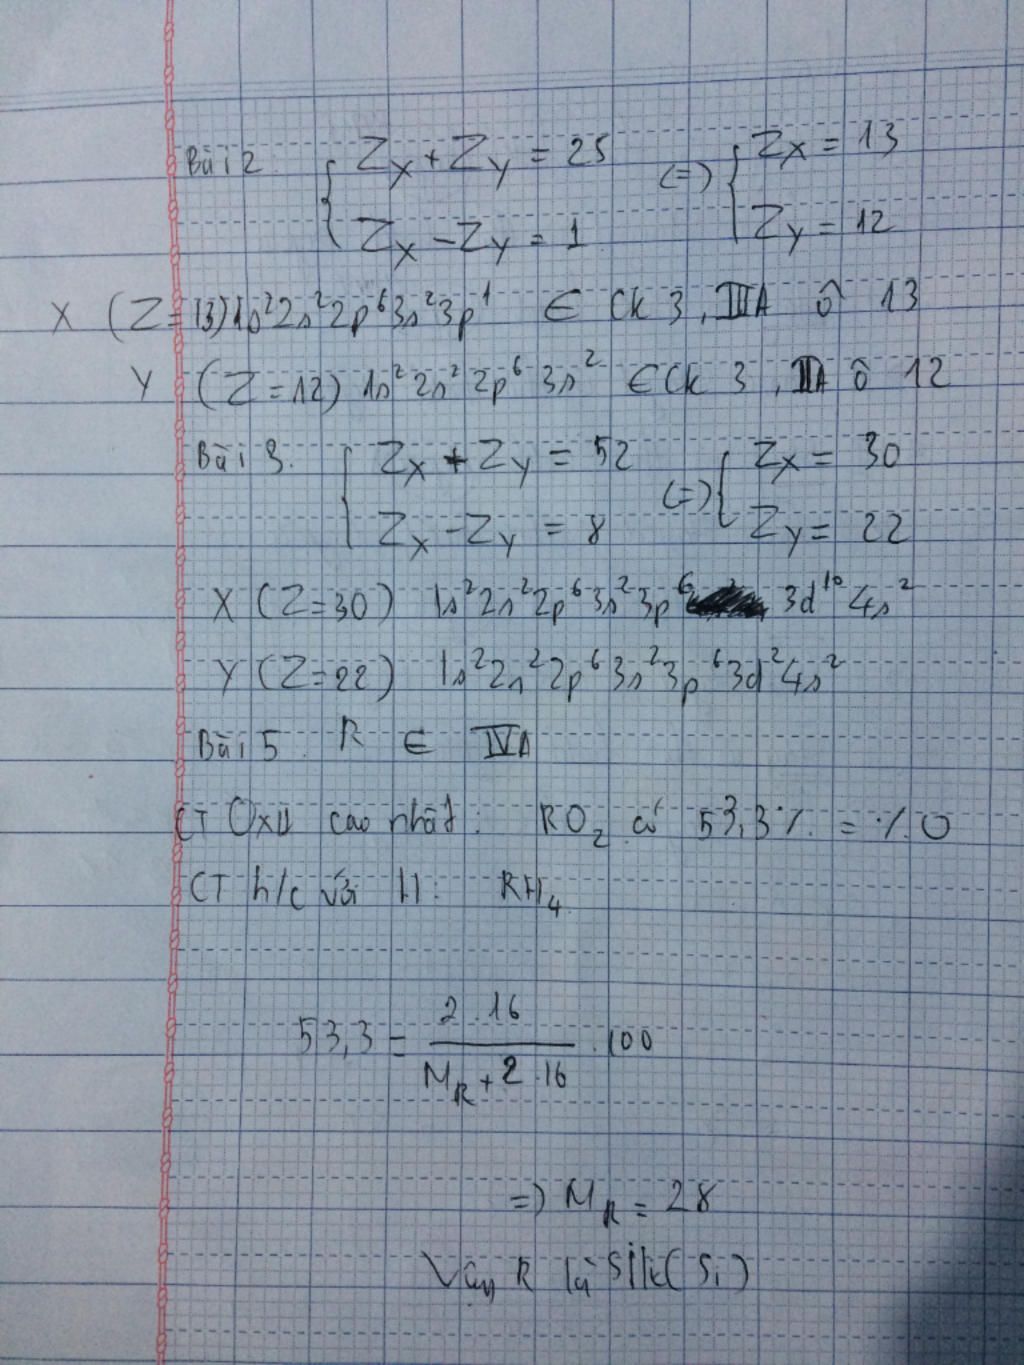 Bài 2. { Zx + Zy = 25 (=) { Zx = 13
Zx - Zy = 1 Zy = 12
X (Z = 13) 1s²2s²2p⁶3s²3p¹ ∈ CK 3, IIIA ô 13
Y (Z = 12) 1s²2s²2p⁶3s² ∈ CK 3, IIA ô 12
Bài 3. { Zx + Zy = 52 (=) { Zx = 30
Zx - Zy = 8 Zy = 22
X (Z = 30) 1s²2s²2p⁶3s²3p⁶ 3d¹⁰4s²
Y (Z = 22) 1s²2s²2p⁶3s²3p⁶3d²4s²
Bài 5. R ∈ IVA
CT Oxit cao nhất: RO₂ có 53,3% = %O
CT h/c với H: RH₄
53,3 = (2.16)/(M_R + 2.16) .100
=) M_R = 28
Vậy R là Silic (Si)